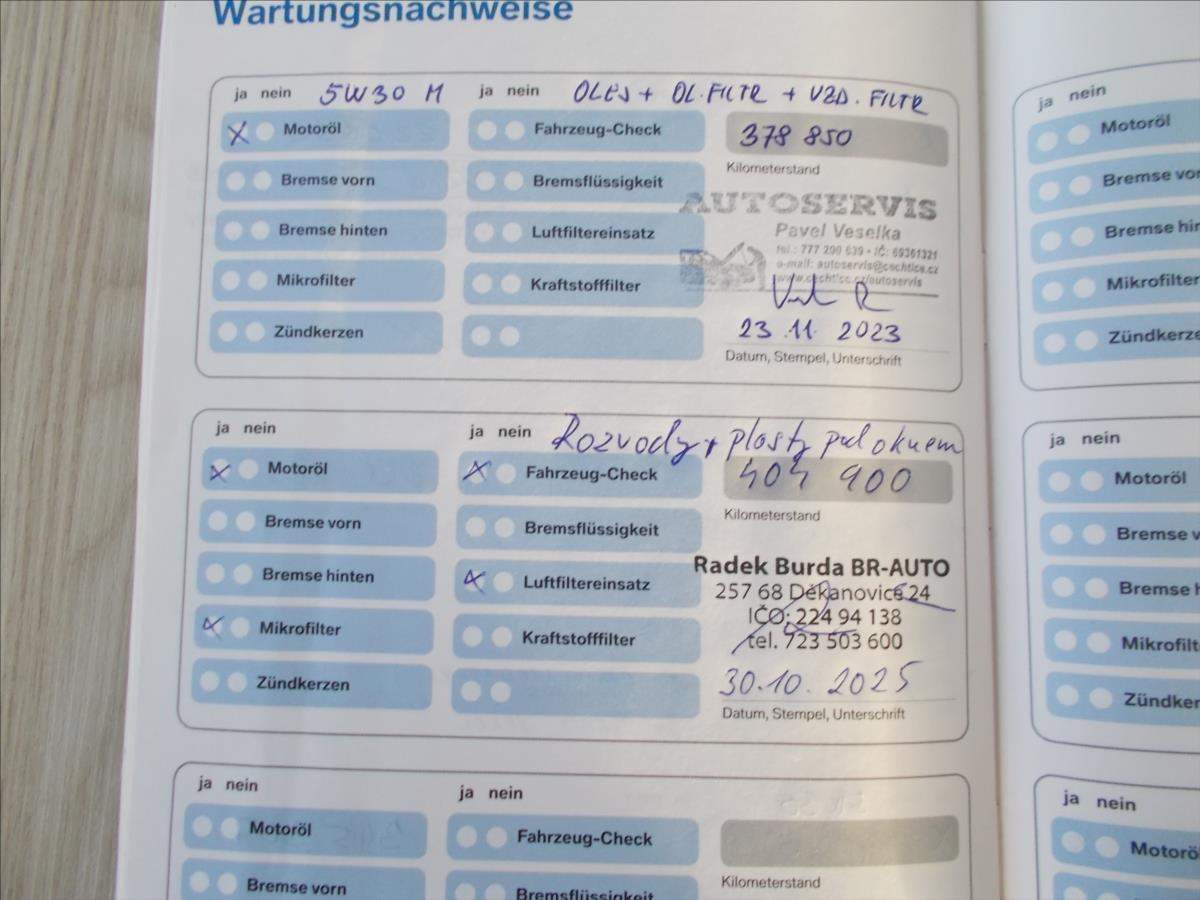 Wartungsnachweise
ja nein 5W30 M ja nein OLEJ + OL. FILTR + VZD. FILTR
Motoröl Fahrzeug-Check 378 850
Kilometerstand
Bremse vorn Bremsflüssigkeit
AUTOSERVIS
Pavel Veselka
Bremse hinten Luftfiltereinsatz
tel.: 777 290 639 • IČ: 69361321
e-mail: autoservis@cechtice.cz
www.cechtice.cz/autoservis
Mikrofilter Kraftstofffilter
23.11. 2023
Zündkerzen
Datum, Stempel, Unterschrift
ja nein ja nein Rozvody + plasty pod oknem
Motoröl Fahrzeug-Check 404 900
Kilometerstand
Bremse vorn Bremsflüssigkeit
Radek Burda BR-AUTO
Bremse hinten Luftfiltereinsatz
257 68 Děkanovice 24
IČO: 224 94 138
Mikrofilter Kraftstofffilter
tel. 723 503 600
Zündkerzen
30.10. 2025
Datum, Stempel, Unterschrift
ja nein ja nein
Motoröl Fahrzeug-Check
Kilometerstand
Bremse vorn Bremsflüssigkeit
ja nein
Motoröl
Bremse vor
Bremse hin
Mikrofilter
Zündkerze
ja nein
Motoröl
Bremse v
Bremse h
Mikrofilt
Zündker
ja nein
Motorö